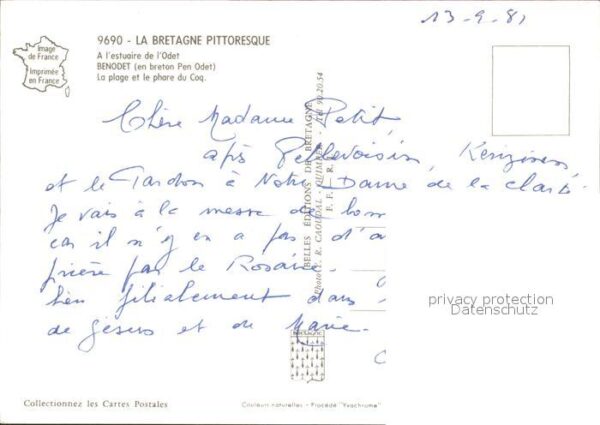 13-9-81
9690 - LA BRETAGNE PITTORESQUE
Image
de France
Imprimée
en France
A l'estuaire de l'Odet
BENODET (en breton Pen Odet)
La plage et le phare du Coq.
Chère Madame Petit,
Pellevoisin,
et le Pardon à Notre-Dame de la Clarté
Je vais à la messe de
car il n'y en a pas
prière par le Rosaire.
bien filialement dans
de Jésus et de Marie.
BELLES ÉDITIONS DE BRETAGNE
R. CAOUDAL - QUIMPER - Tél 90-20.54
privacy protection
Datenschutz
BRETAGNE
Collectionnez les Cartes Postales
Couleurs naturelles - Procédé "Yvachrome"